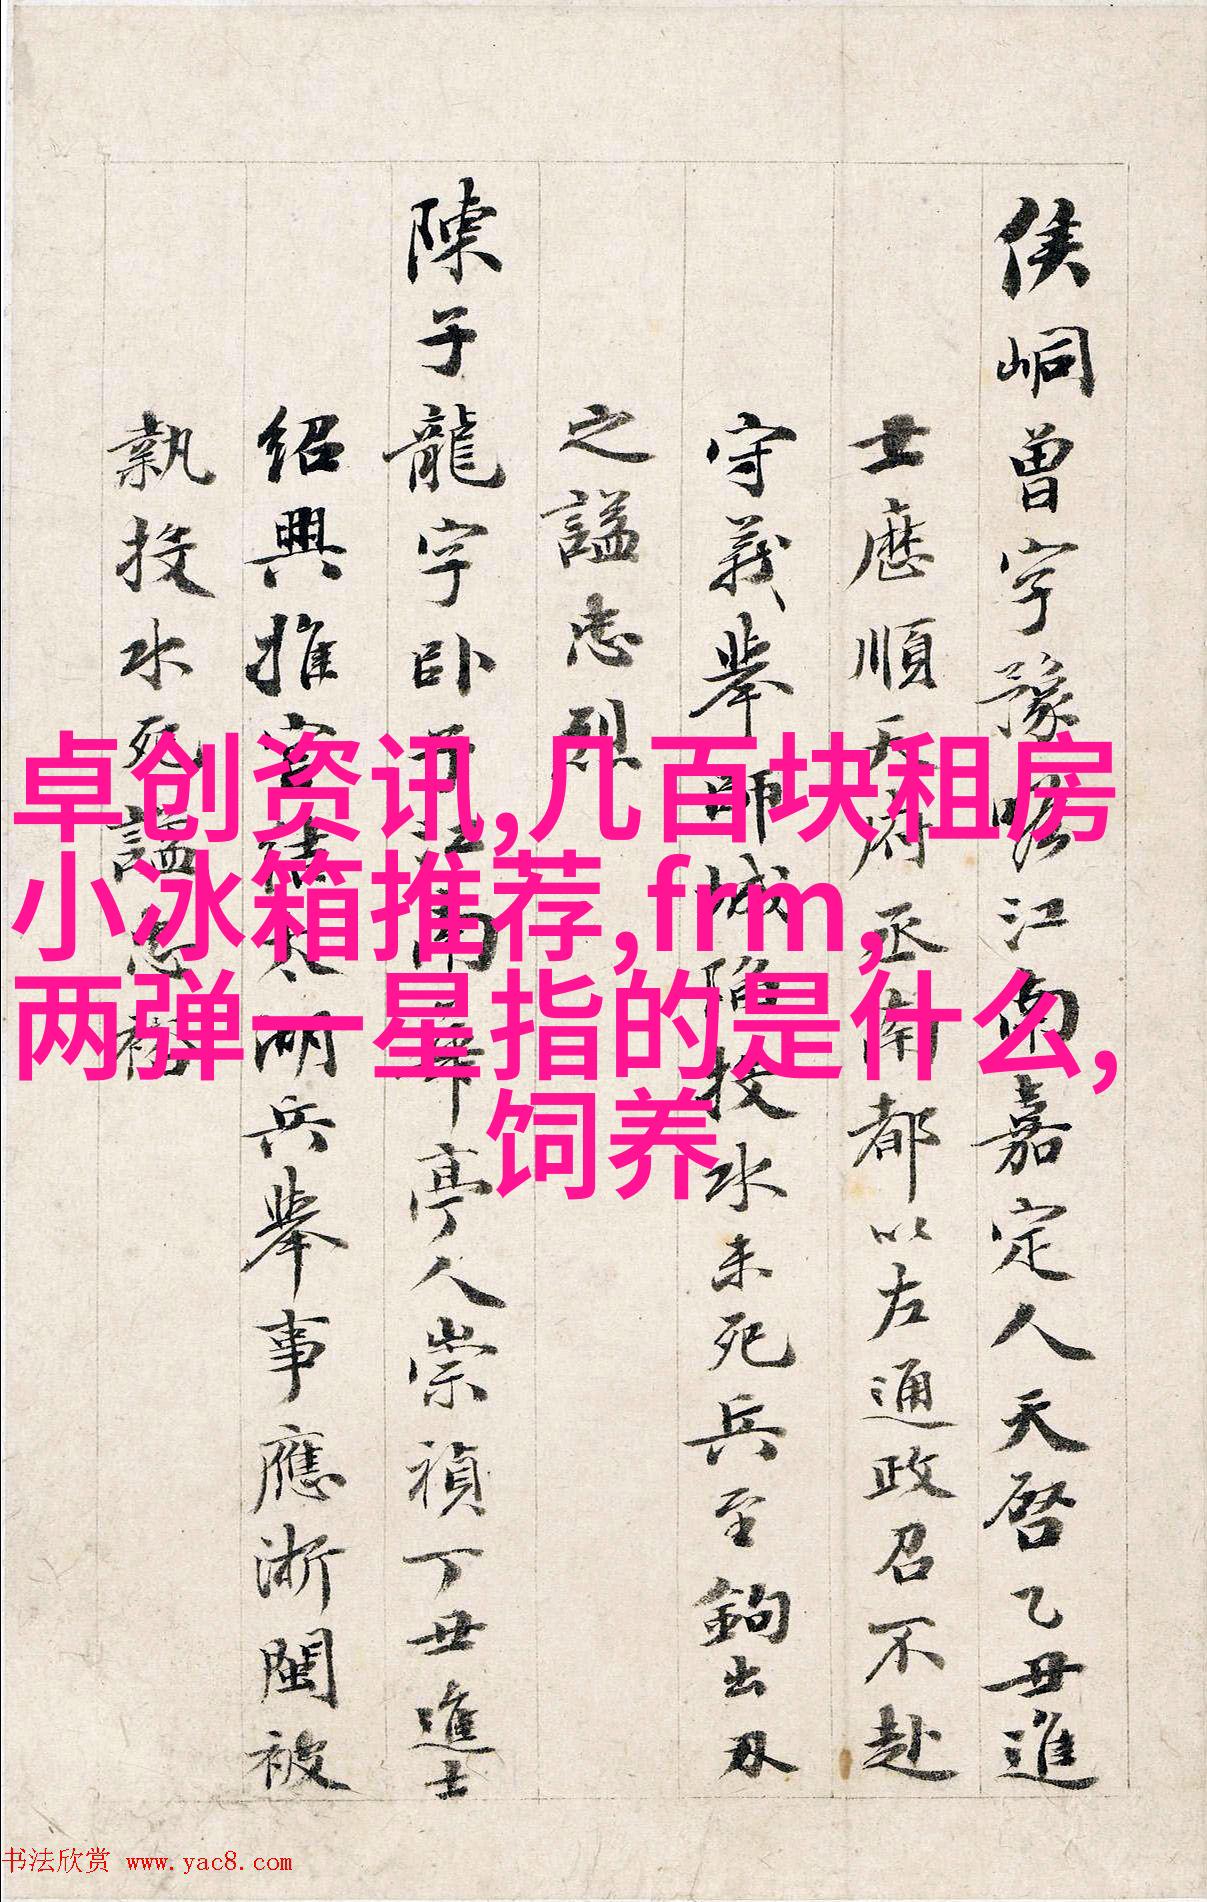 侯峒曾字豫瞻江南嘉定人天啓乙丑進
士歷順天府丞南都以左通政召不赴
守義舉師城陷投水未死兵至鉤出刃
之謚忠烈
陳子龍字卧子江南華亭人崇禎丁丑進士
紹興推官結太湖兵舉事應浙閩被
執投水死謚忠裕
卓创资讯,几百块租房
小冰箱推荐,frm,
两弹一星指的是什么,
饲养
书法欣赏 www.yac8.com